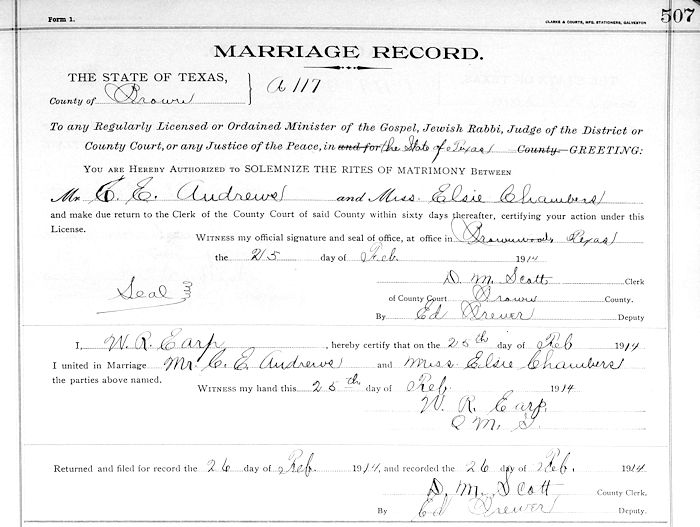 Form 1.
CLARKE & COURTS, MFG. STATIONERS, GALVESTON
507
MARRIAGE RECORD.
THE STATE OF TEXAS,
County of Brown
A 117
To any Regularly Licensed or Ordained Minister of the Gospel, Jewish Rabbi, Judge of the District or
County Court, or any Justice of the Peace, in and for the State of Texas County. GREETING:
YOU ARE HEREBY AUTHORIZED TO SOLEMNIZE THE RITES OF MATRIMONY BETWEEN
Mr. C. E. Andrews and Miss Elsie Chambers
and make due return to the Clerk of the County Court of said County within sixty days thereafter, certifying your action under this
License.
WITNESS my official signature and seal of office, at office in Brownwood, Texas
the 25 day of Feb. 1914
D. M. Scott Clerk
Seal
of County Court Brown County.
By Ed Deputy
I, W. R. Earp, hereby certify that on the 25th day of Feb 1914
I united in Marriage Mr. C. E. Andrews and Miss Elsie Chambers
the parties above named.
WITNESS my hand this 25th day of Feb. 1914
W. R. Earp
M. G.
Returned and filed for record the 26 day of Feb. 1914, and recorded the 26 day of Feb. 1914
D. M. Scott County Clerk,
By Ed Deputy.